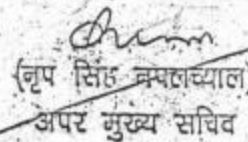 (नृप सिंह नपलच्याल)
अपर मुख्य सचिव